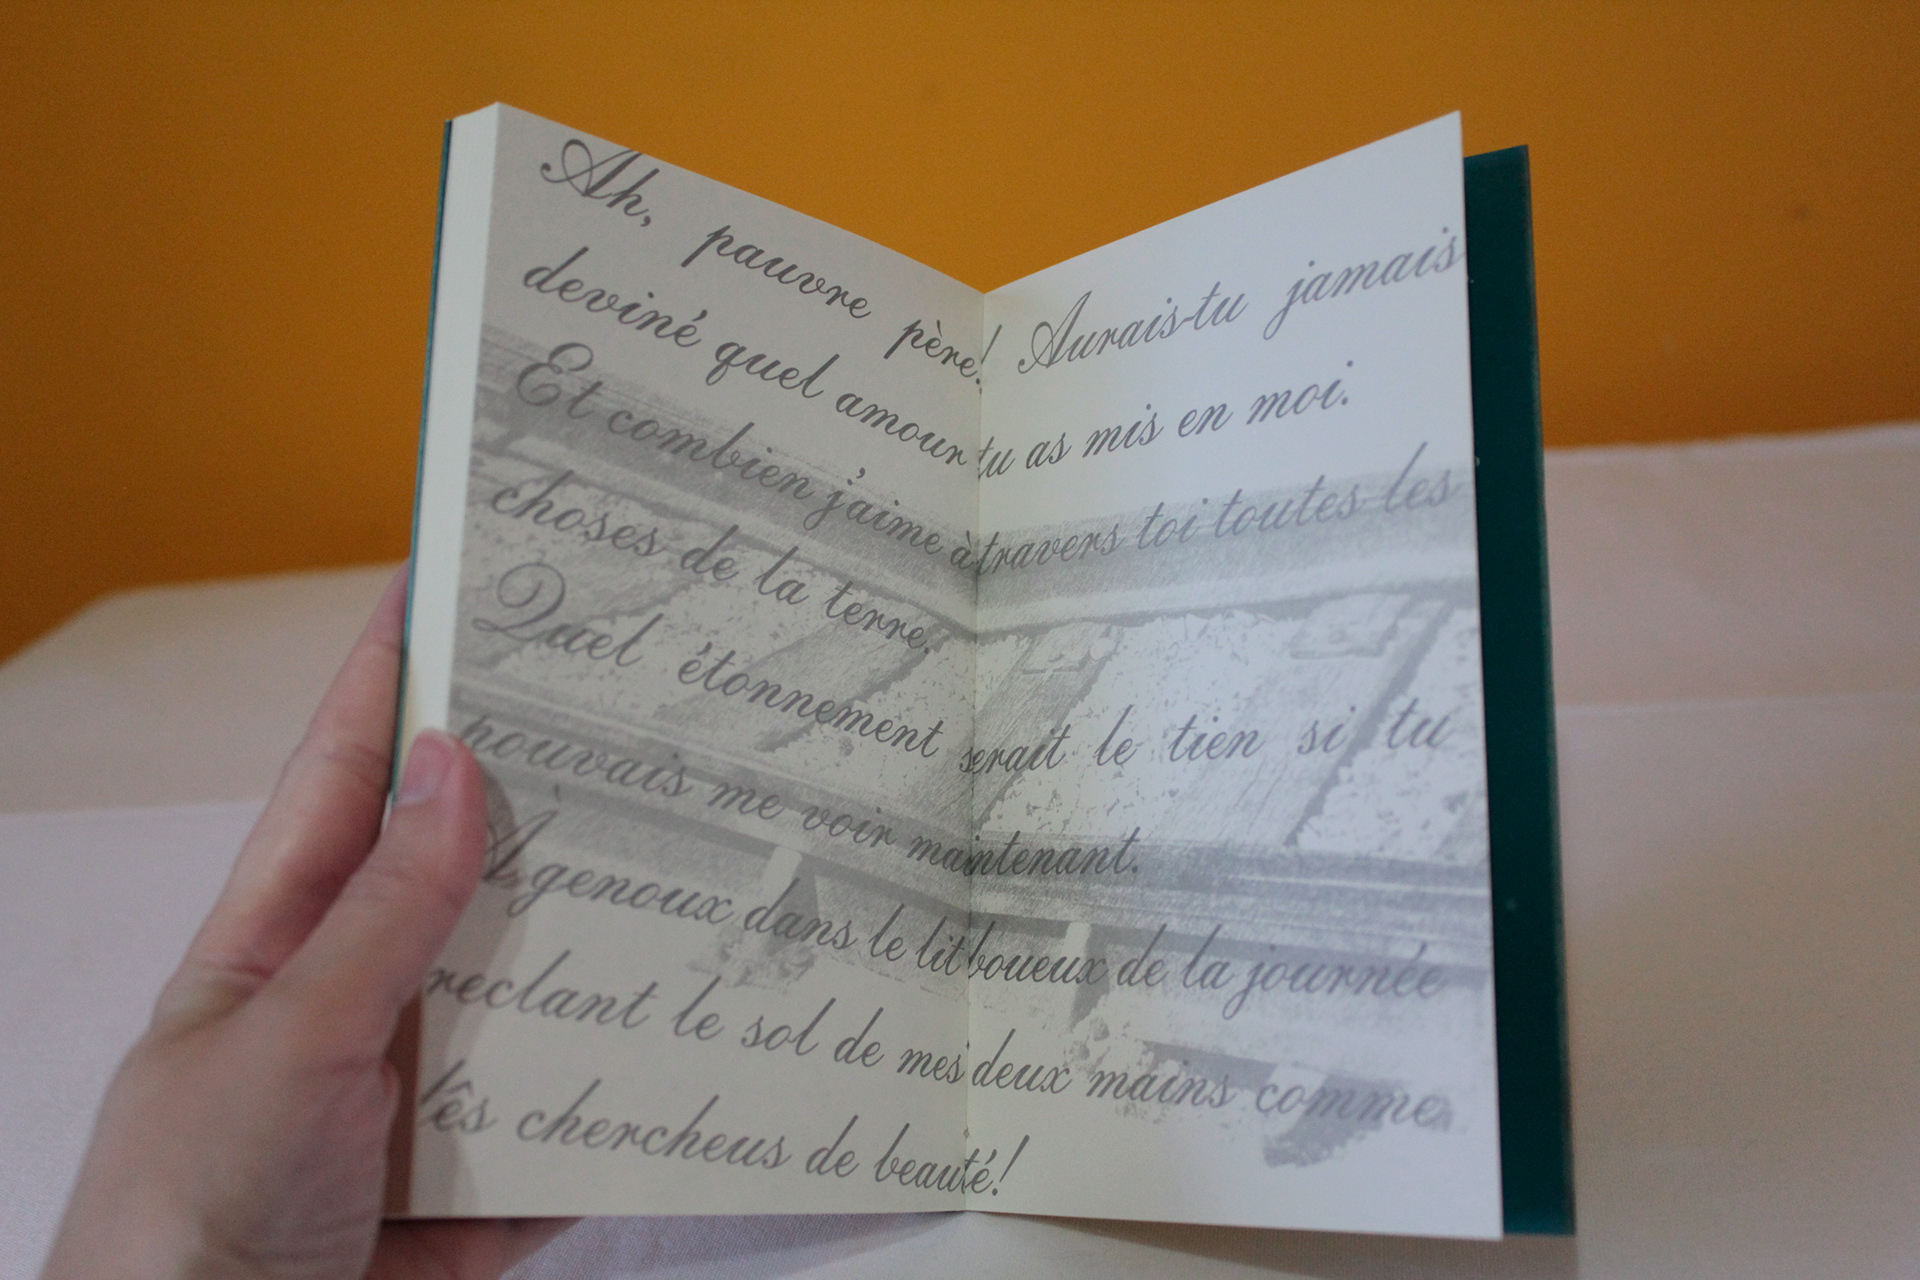 Ah, pauvre père! Aurais-tu jamais
deviné quel amour tu as mis en moi.
Et combien j'aime à travers toi toutes les
choses de la terre.
Quel étonnement serait le tien si tu
pouvais me voir maintenant.
À genoux dans le lit boueux de la journée
reclant le sol de mes deux mains comme
lês chercheus de beauté!